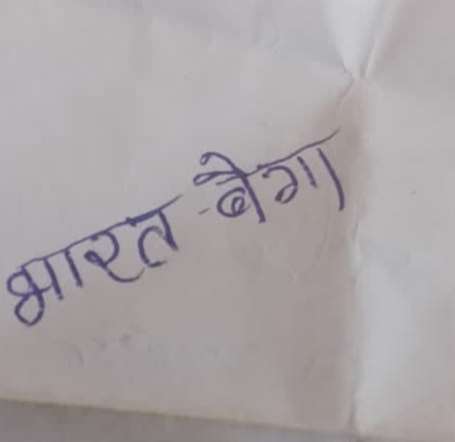 भारत बैगा